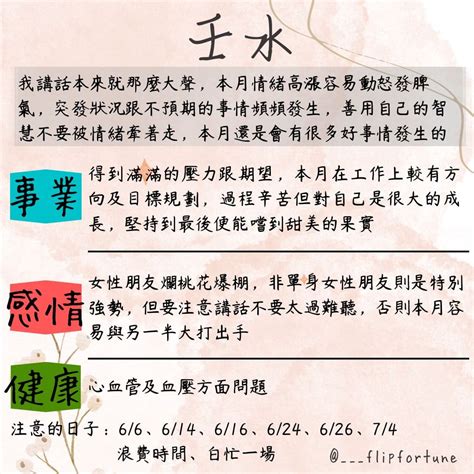 壬水
我講話本來就那麼大聲，本月情緒高漲容易動怒發脾
氣，突發狀況跟不預期的事情頻頻發生，善用自己的智
慧不要被情緒牽著走，本月還是會有很多好事情發生的
事業
得到滿滿的壓力跟期望，本月在工作上較有方
向及目標規劃，過程辛苦但對自己是很大的成
長，堅持到最後便能嚐到甜美的果實
感情
女性朋友爛桃花爆棚，非單身女性朋友則是特別
強勢，但要注意講話不要太過難聽，否則本月容
易與另一半大打出手
健康
心血管及血壓方面問題
注意的日子：6/6、6/14、6/16、6/24、6/26、7/4
浪費時間、白忙一場
@___flipfortune